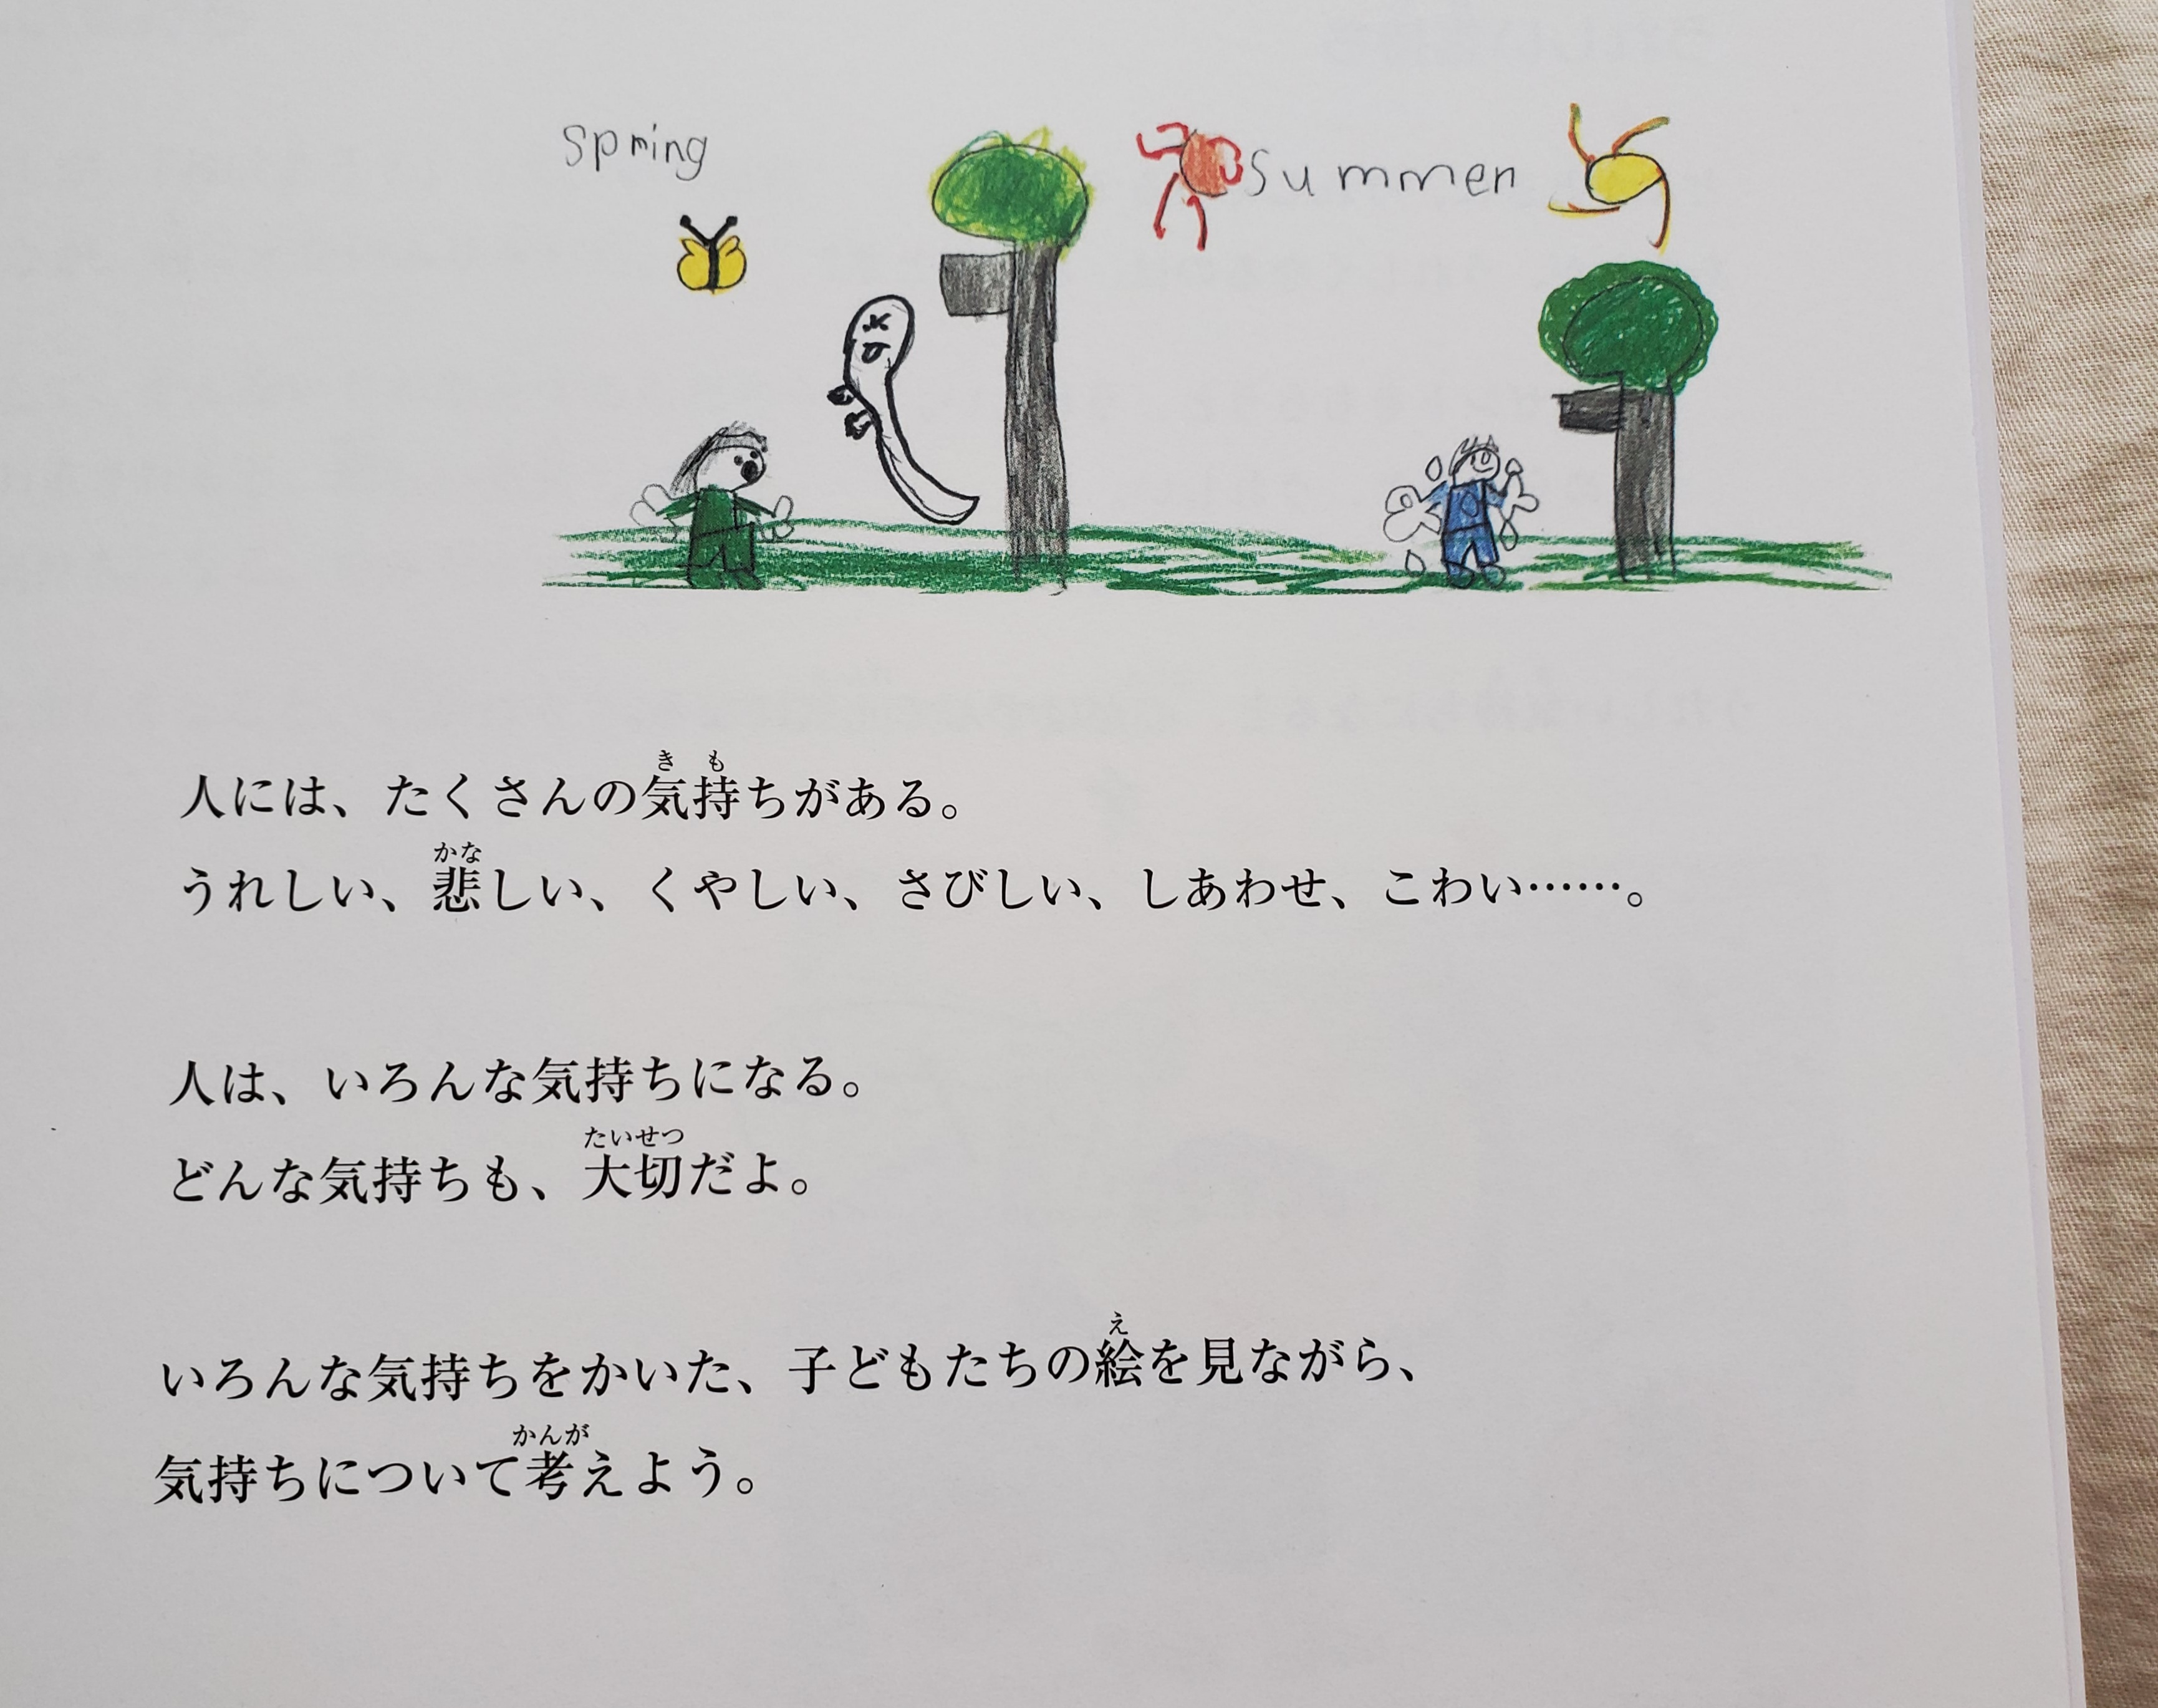 spring
summer
人には、たくさんの気持ちがある。
うれしい、悲しい、くやしい、さびしい、しあわせ、こわい……。
人は、いろんな気持ちになる。
どんな気持ちも、大切だよ。
いろんな気持ちをかいた、子どもたちの絵を見ながら、
気持ちについて考えよう。